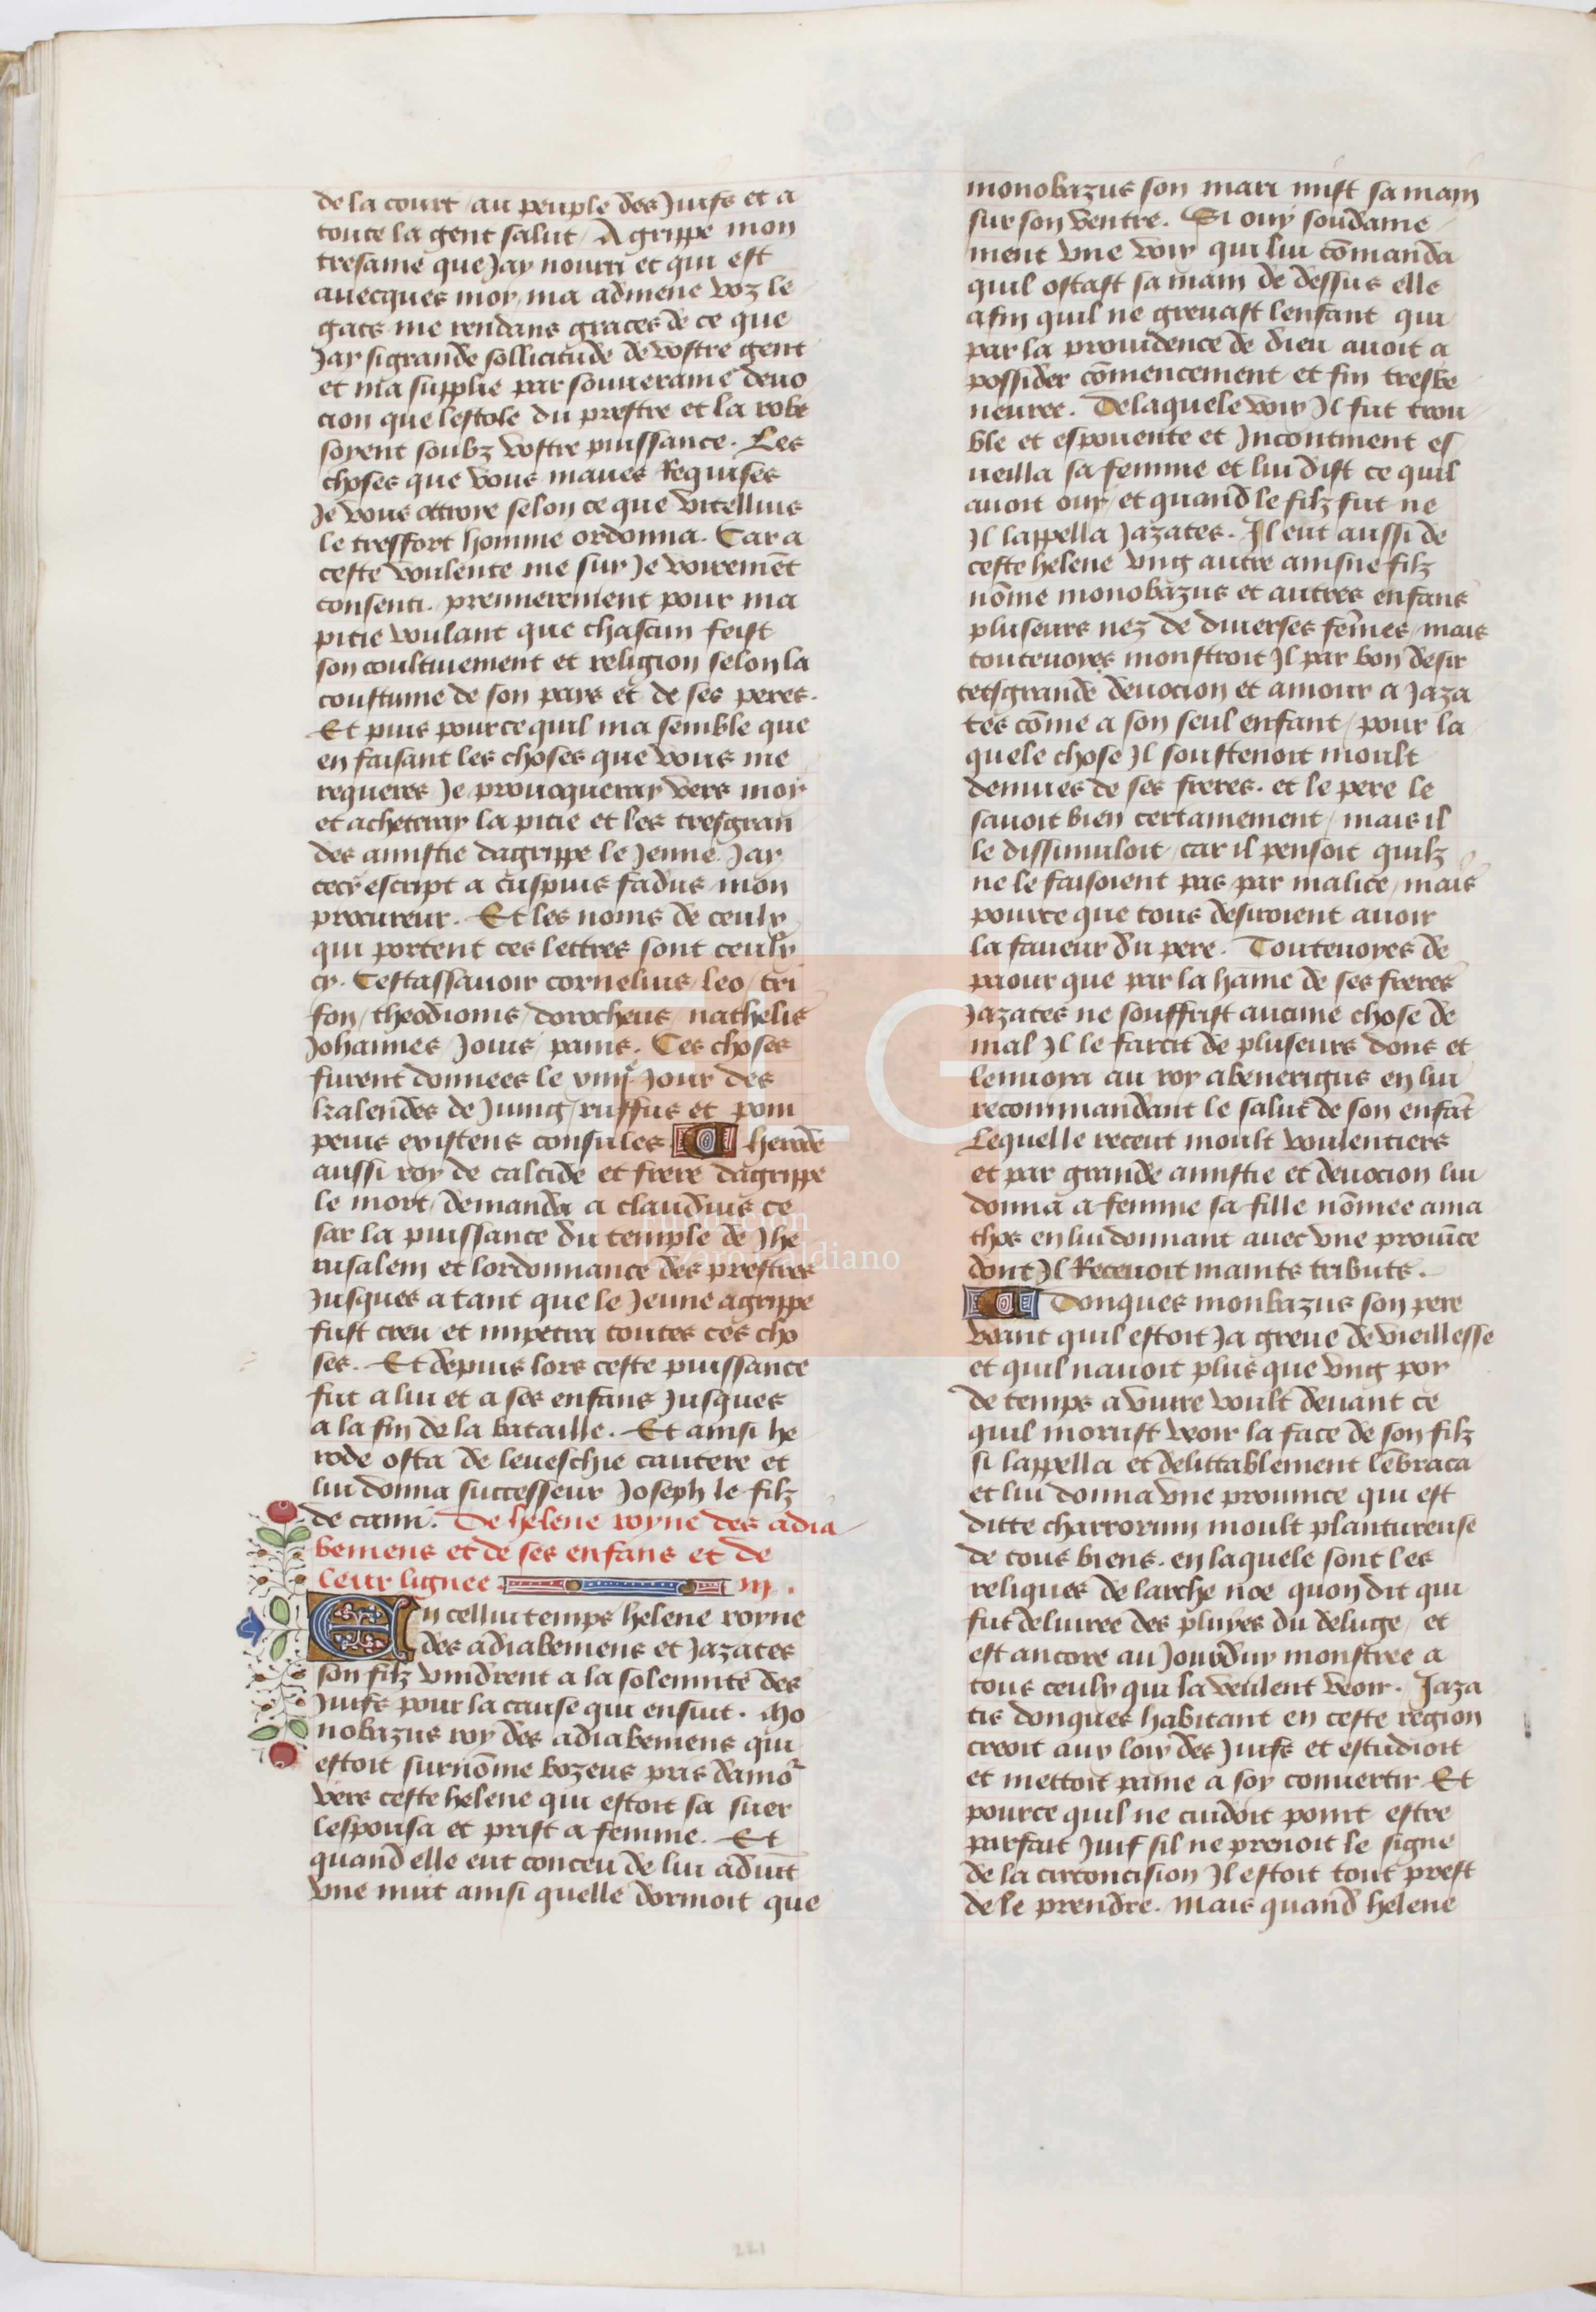 de la court / au peuple des Juifs et a
toute la gent salut / Agrippe mon
tresame que Jay nourri et qui est
auecques moy / ma admene voz le
gats me rendans graces de ce que
Jay si grande sollicitude de vostre gent
et ma supplie par souueraine deuo
cion que lestole du prestre et la robe
soyent soubz vostre puissance. Les
choses que vous maues Requises
Je vous ottroye selon ce que vitellius
le tresfort homme ordonna. Car a
ceste voulente me sur Je voiremēt
consenti. premierement pour ma
pitie voulant que chascun feist
son coultiuement et religion selon la
coustume de son pays et de ses peres.
Et puis pource quil ma semble que
en faisant les choses que vous me
requeres Je prouocqueray vers moy
et acheteray la pitie et les tresgran
des amistie dagrippe le Jenne Jay
cecy escript a cuspius fadus mon
procureur. Et les noms de ceulx
qui portent ces lettres sont ceulx
cy. Cestassauoir cornelius / leo / tri
fon / theodionis / dorotheus / nathelis
Johannes / Jouis / panis. Ces choses
furent donnees le viiije Jour des
kalendes de Juing / ruffus et pom
peius existens consules herode
aussi roy de calcide et frere dagrippe
le mort / demanda a claudius ce
sar la puissance du temple de Jhe
rusalem et lordonnance des prestres
Jusques a tant que le Jeune agrippe
fust creu et impetra toutes ces cho
ses. Et depuis lors ceste puissance
fut a lui et a ses enfans Jusques
a la fin de la bataille. Et ainsi he
rode osta de leueschie cantere et
lui donna successeur Joseph le filz
de cami. De helene royne des adia
beniens et de ses enfans et de
leur lignee iij.
En cellui temps helene royne
des adiabeniens et Jazates
son filz vindrent a la solemnite des
Juifs pour la cause qui ensuit. Mo
nobazus roy des adiabeniens qui
estoit surnōme bozeus pris damor
vers ceste helene qui estoit sa suer
lespousa et prist a femme. Et
quand elle eut conceu de lui aduīt
vne nuit ainsi quelle dormoit que
monobazus son mari mist sa main
sur son ventre. Si ouy soudaine
ment vne voix qui lui cōmanda
quil ostast sa main de dessus elle
afin quil ne greuast lenfant qui
par la prouidence de dieu auoit a
possider cōmencement et fin tresbe
neuree. De laquele voix Il fut trou
ble et espouente et Incontinent es
ueilla sa femme et lui dist ce quil
auoit ouy / et quand le filz fut ne
Il lappella Jazates. Il eut aussi de
ceste helene vng autre ainsne filz
nōme monobazus et autres enfans
pluseurs nez de diuerses fēmes / mais
touteuoyes monstroit Il par bon desir
tresgrande deuocion et amour a Jaza
tes cōme a son seul enfant / pour la
quele chose Il soustenoit moult
denuies de ses freres. et le pere le
sauoit bien certainement / mais il
le dissimuloit / car il pensoit quilz
ne le faisoient pas par malice / mais
pource que tous desiroient auoir
la faueur du pere. Touteuoyes de
paour que par la haine de ses freres
Jazates ne souffrist aucune chose de
mal Il le farcit de pluseurs dons et
lenuoya au roy abenerigus en lui
recommandant le salut de son enfāt
Lequelle receut moult voulentiers
et par grande amistie et deuocion lui
donna a femme sa fille nōmee ama
thos en lui donnant auec vne prouīce
dont Il Receuoit maints tributs.
Donques monbazus son pere
veant quil estoit Ja greue de vieillesse
et quil nauoit plus que vng poy
de temps a viure voult deuant ce
quil morust veoir la face de son filz
si lappella et delittablement lēbraca
et lui donna vne prouince qui est
ditte charrorum moult plantureuse
de tous biens. en laquele sont les
reliques de larche noe quon dit qui
fut deliuree des pluyes du deluge / et
est ancore au Jourduy monstree a
tous ceulx qui la veulent veoir. Jaza
tis donques habitant en ceste region
creoit aux loix des Juifs et estudioit
et mettoit paine a soy conuertir Et
pource quil ne cuidoit point estre
parfait Juif sil ne prenoit le signe
de la circoncision Il estoit tout prest
de le prendre. Mais quand helene
FLG
Fundación
Lázaro Galdiano
221